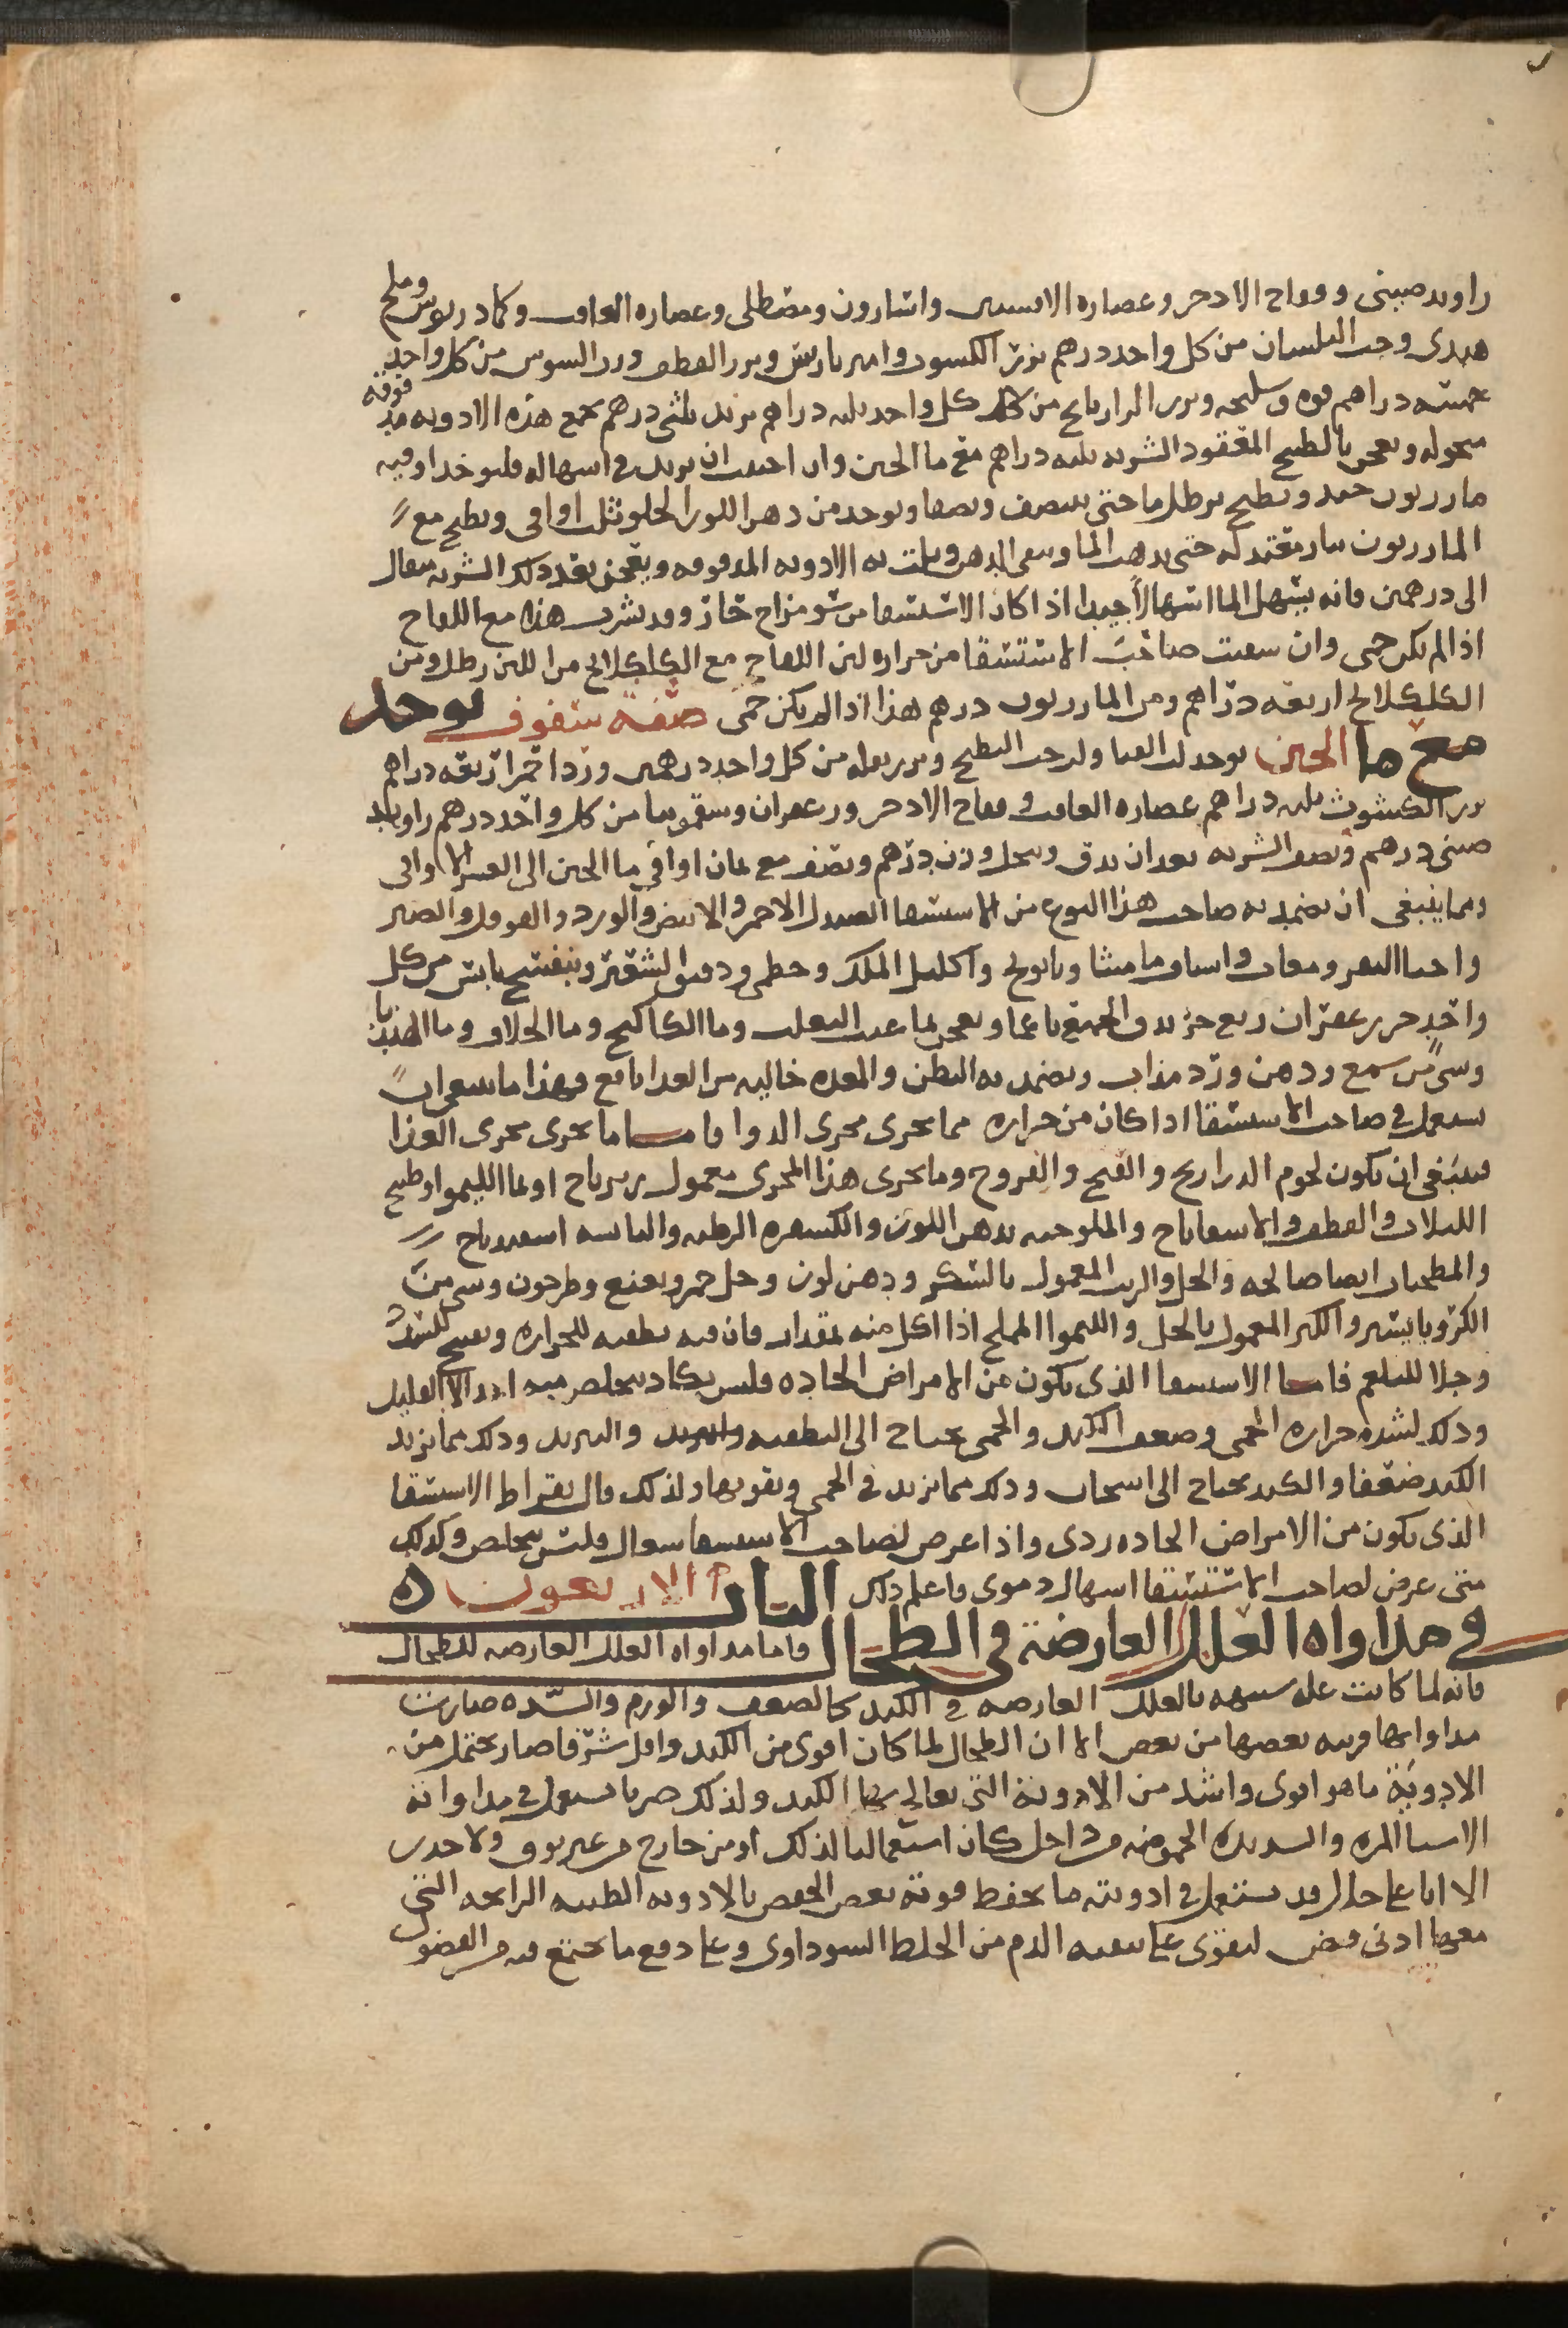 راوند صينى وفقاح الادخر وعصاره الافسنتين واسارون ومصطكى وعصاره الغافت وكمادريوس وملح
هندى وحب البلسان من كل واحد درهم بزر الكسوت وامير باريس وبزر القطف ورب السوس من كل واحد
خمسه دراهم فوه وسليخه وبزر الرازيانج من كل واحد ثلثه دراهم تربد ثلثى درهم تجمع هذه الادويه مدقوقه
منخوله وتعجن بالطبيخ المعقود الشربه ثلثه دراهم مع ما الجبن وان احببت ان تزيد فى اسهاله فليوخذ اوقيه
مازريون جيد ويطبخ برطل ما حتى ينتصف ويصفا ويوخذ من دهن اللوز الحلو ثلث اواقى ويطبخ مع
المازريون بنار معتدله حتى يذهب الما ويبقى الدهن ويلت به الادويه المدقوقه ويعجن بعد ذلك الشربه مثقال
الى درهمين فانه يسهل الما اسهالا جيدا اذا كان الاستسقا من سو مزاج حار وقد يشرب هذا مع اللقاح
اذا لم يكن حمى وان سقيت صاحب الاستسقا من حراره لبن اللقاح مع الكلكلانج من اللبن رطل ومن
الكلكلانج اربعه دراهم ومن المازريون درهم هذا اذا لم يكن حمى صفة سفوف يوخذ
مع ما الجبن يوخذ لب القثا ولب حب البطيخ وبزر بقله من كل واحد درهمين ورد احمر اربعه دراهم
بزر الكشوث ثلثه دراهم عصاره الغافت وفقاح الادخر وزعفران وسقمونيا من كل واحد درهم راوند
صينى درهم ونصف الشربه بعد ان يدق وينخل وزن درهم ونصف مع ثمان اواقى ما الجبن الى العشر الاواقى
ومما ينبغى ان يضمد به صاحب هذا النوع من الاستسقا الصندل الاحمر والابيض والورد والفوفل والصبر
واخثا البقر ومغاث واشياف ماميثا وبابونج واكليل الملك وخطمى ودقيق الشعير وبنفسج يابس من كل
واحد جزو زعفران ربع جزو يدق الجميع ناعما ويعجن بما عنب الثعلب وما الكاكنج وما الخلاف وما الهندبا
وشى من شمع ودهن ورد مذاب ويضمد به البطن والمعده خاليه من الغدا نافع فهذا ما ينبغى ان
يستعمل فى صاحب الاستسقا اذا كان من حراره مما يجرى مجرى الدوا فاما ما يجرى مجرى الغذا
فينبغى ان تكون لحوم الدراريج والقبج والفروج وما يجرى هذا المجرى معمول بزيرباج او بما الليمو او طبيخ
اللبلاب والقطف والاسفاناخ والملوخيه بدهن اللوز والكسفره الرطبه واليابسه اسفيدباج
والمطجنات ايضا صالحه والخل والزيت المعمول بالسكر ودهن لوز وخل خمر ونعنع وطرخون وشى من
الكرويا يسير والكبر المعمول بالخل والليموا المملح اذا اكل منه بمقدار فان فيه تطفيه للحراره وتفتيح للسدد
وجلا للبلغم فاما الاستسقا الذى يكون من الامراض الحاده فليس يكاد يتخلص منه احد الا القليل
وذلك لشده حراره الحمى وضعف الكبد والحمى تحتاج الى التطفيه والتبريد وذلك مما يزيد
الكبد ضعفا والكبد تحتاج الى اسخان وذلك مما يزيد فى الحمى ويقويها ولذلك قال بقراط الاستسقا
الذى يكون من الامراض الحاده ردى واذا عرض لصاحب الاستسقا سعال فليس يتخلص وكذلك
متى عرض لصاحب الاستسقا اسهال دموى فاعلم ذلك الباب الاربعون ه
فى مداواه العلل العارضة فى الطحال فاما مداواه العلل العارضه للطحال
فانه لما كانت علله شبيهه بالعلل العارضه فى الكبد كالضعف والورم والسده صارت
مداواتها قريبه بعضها من بعض الا ان الطحال لما كان اقوى من الكبد واقل شرفا صار يحتمل من
الادوية ما هو اقوى واشد من الادوية التى تعالج بها الكبد ولذلك صرنا نستعمل فى مداواته
الاشيا المره والشديده الحموضه من داخل كان استعمالنا لذلك او من خارج من غير توق ولا حذر
الا انا على حال قد نستعمل فى ادويته ما يحفظ قوته بعض الحفظ بالادويه الطيبه الرايحه التى
معها ادنى قبض ليقوى على تنقيه الدم من الخلط السوداوى وعلى دفع ما يجتمع فيه من الفضول